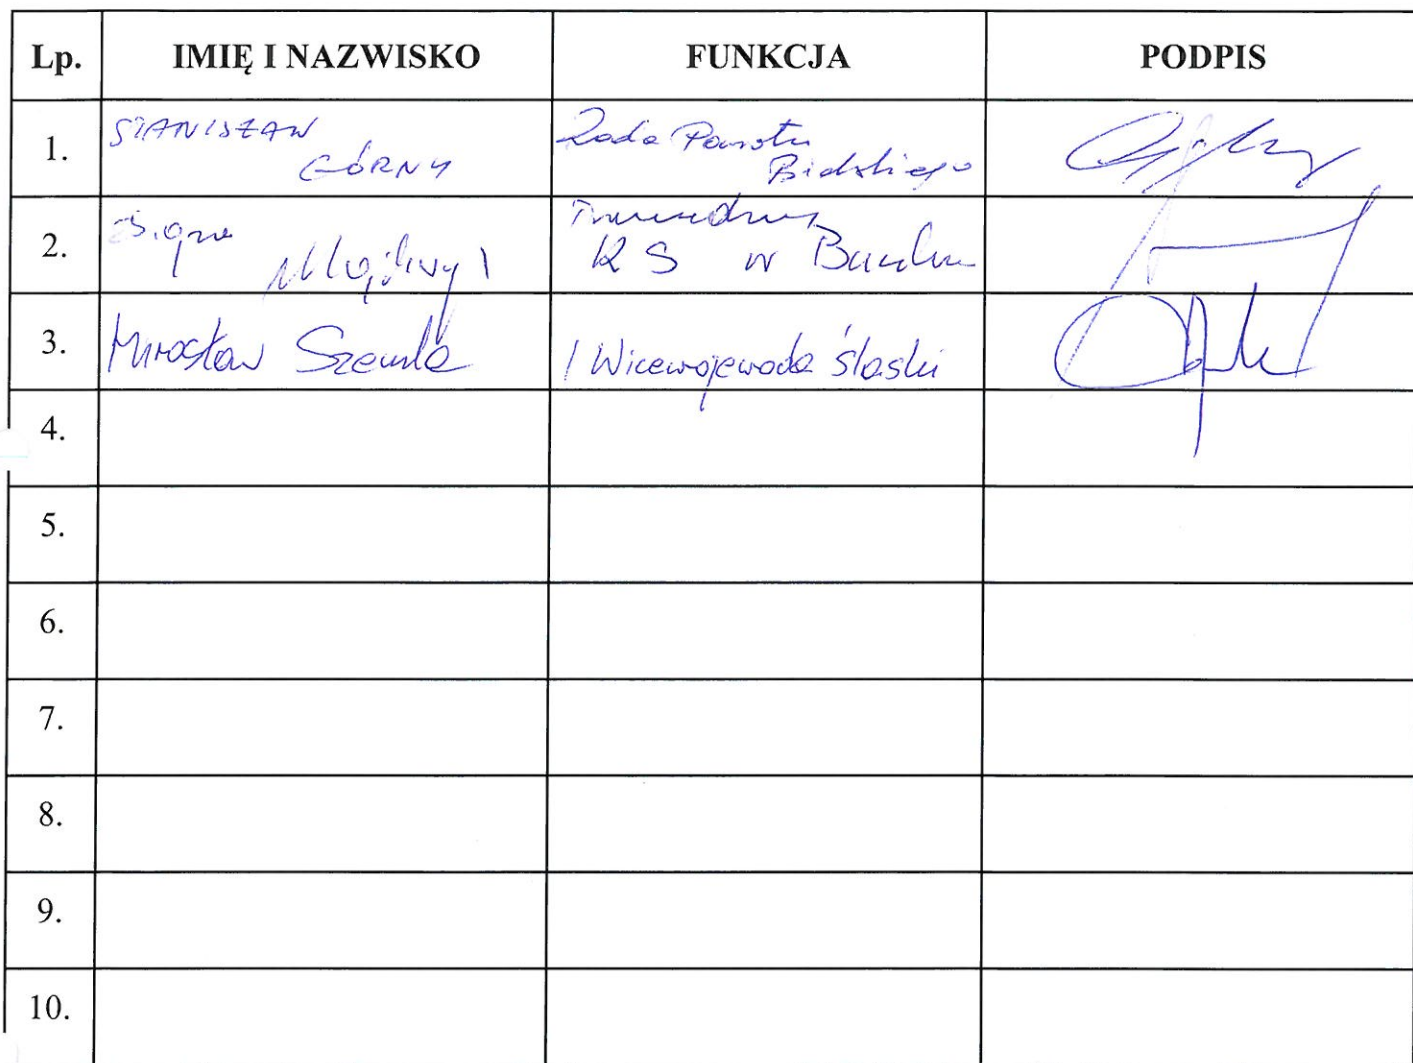 Lp. IMIĘ I NAZWISKO FUNKCJA PODPIS
1. STANISŁAW GÓRNY Rada Powiatu Bielskiego
2. RS w
3. Mirosław Szemla I Wicewojewoda śląski
4.
5.
6.
7.
8.
9.
10.